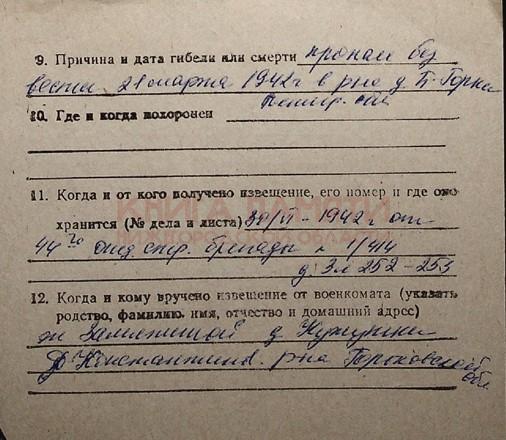 9. Причина и дата гибели или смерти пропал без
вести 21 марта 1942 г в р-не д. Б-Горки
Ленингр. обл
10. Где и когда похоронен
11. Когда и от кого получено извещение, его номер и где оно
хранится (№ дела и листа) 30/VI-1942 г от
44го отд. стр. бригады № 1/414
д 3 л 252-253
12. Когда и кому вручено извещение от военкомата (указать
родство, фамилию, имя, отчество и домашний адрес)
д.
Д. Константин. р-на Горьковской
обл.
КНИГА ПАМЯТИ